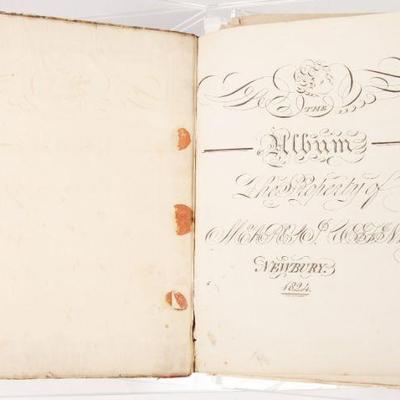 THE
Album
The Property of
NEWBURY.
1824.